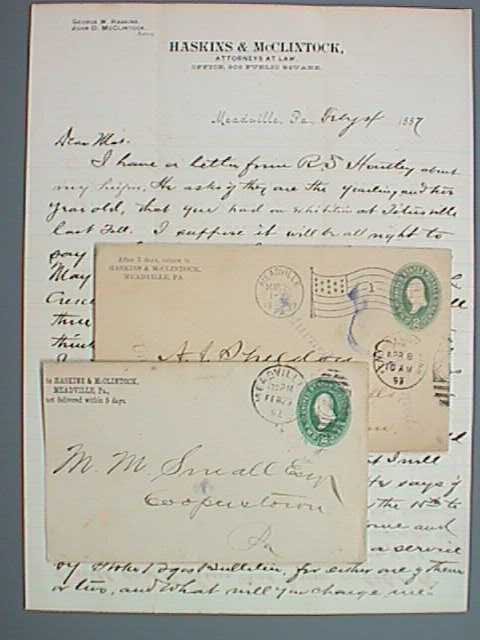 GEORGE W. HASKINS.
JOHN O. McCLINTOCK.
HASKINS & McCLINTOCK,
ATTORNEYS AT LAW.
OFFICE, PUBLIC SQUARE.
Meadville, Pa., Feby 4 1887
Dear Miss.
I have a letter from R. S. Hartley about
my heifers. He asks if they are the yearling and two
year old, that you had on exhibition at Titusville
last Fall. I suppose it will be all right to
say
May
Cresc
three
think
After 5 days, return to
HASKINS & McCLINTOCK,
MEADVILLE, PA.
MEADVILLE
A. L. Sheldon
APR 8
10 AM
to HASKINS & McCLINTOCK,
MEADVILLE, Pa.,
not delivered within 5 days.
MEADVILLE
M. M. Small Esq
Cooperstown
Pa
I will
He says if
the 15th to
come and
a service
by Bulletin, for either one of them
or two, and what will you charge me.